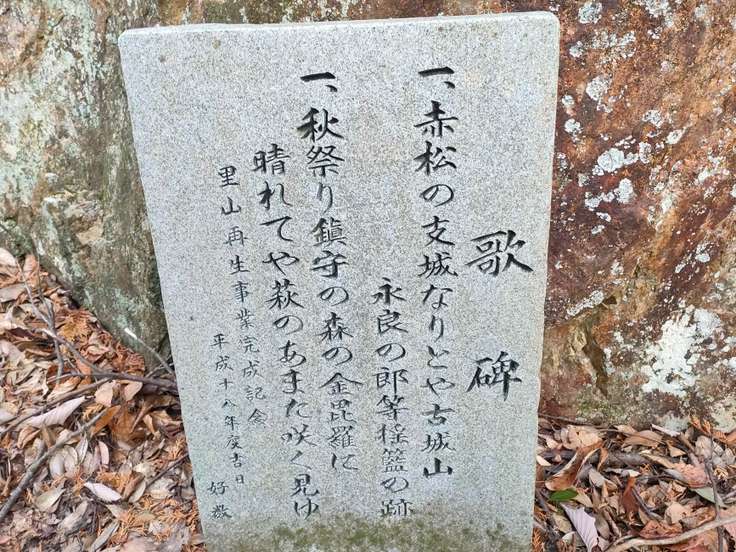 歌碑
一、赤松の支城なりとや古城山
永良の郎等揺籃の跡
一、秋祭り鎮守の森の金毘羅に
晴れてや萩のあまた咲く見ゆ
里山再生事業完成記念
平成十八年度吉日
好数